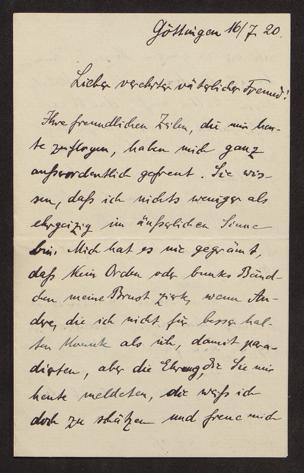 Göttingen 16/7 20.
Lieber verehrter väterlicher Freund!
Ihre freundlichen Zeilen, die mir heu-
te zuflogen, haben mich ganz
außerordentlich gefreut. Sie wis-
sen, daß ich nichts weniger als
ehrgeizig im äußerlichen Sinne
bin. Mich hat es nie gegrämt,
daß kein Orden oder buntes Bänd-
chen meine Brust zierte, wenn An-
dere, die ich nicht für besser hal-
ten konnte als ich, damit para-
dierten, aber die Ehrung, die Sie mir
heute meldeten, die weiß ich
doch zu schätzen und freue mich